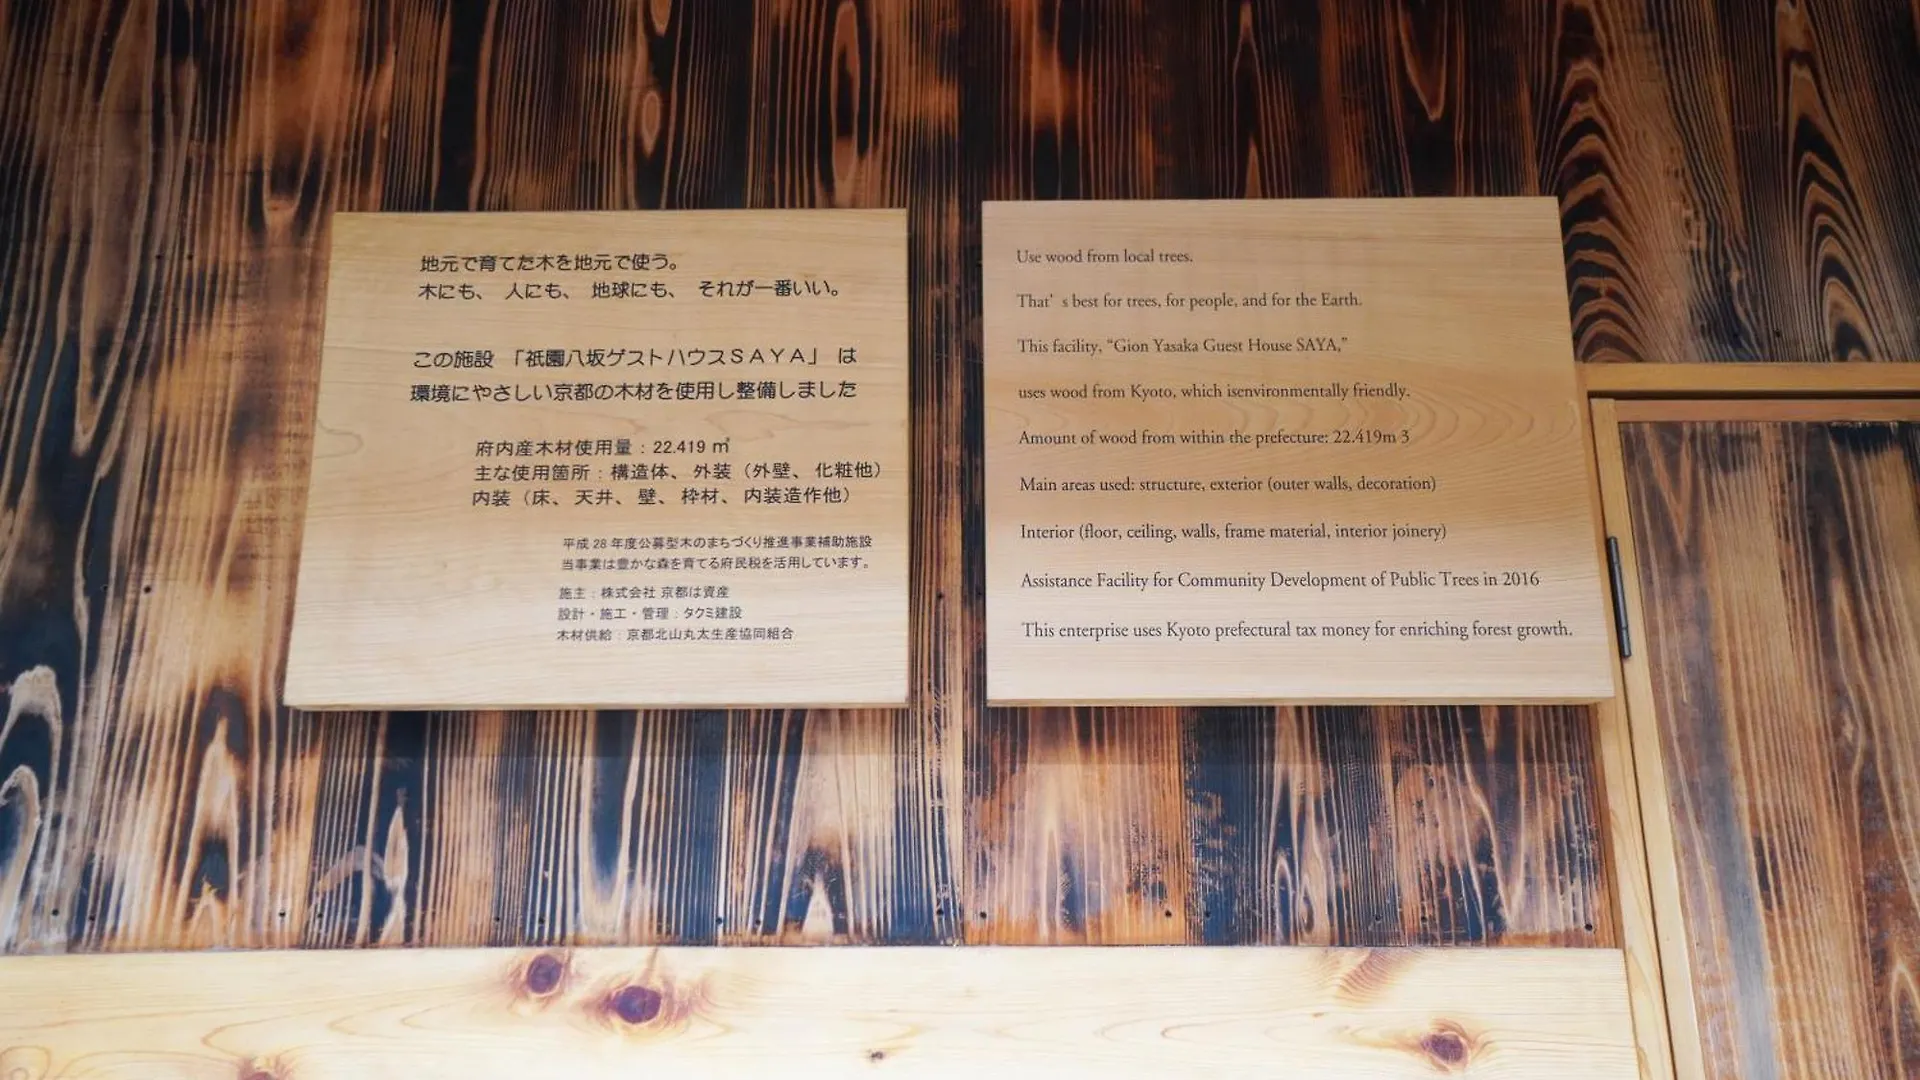 地元で育てた木を地元で使う。
木にも、 人にも、 地球にも、 それが一番いい。
この施設 「祇園八坂ゲストハウスSAYA」 は
環境にやさしい京都の木材を使用し整備しました
府内産木材使用量：22.419 ㎥
主な使用箇所：構造体、外装（外壁、化粧他）
内装（床、天井、壁、枠材、内装造作他）
平成 28 年度公募型木のまちづくり推進事業補助施設
当事業は豊かな森を育てる府民税を活用しています。
施主：株式会社 京都は資産
設計・施工・管理：タクミ建設
木材供給：京都北山丸太生産協同組合
Use wood from local trees.
That’ s best for trees, for people, and for the Earth.
This facility, “Gion Yasaka Guest House SAYA,”
uses wood from Kyoto, which isenvironmentally friendly.
Amount of wood from within the prefecture: 22.419m 3
Main areas used: structure, exterior (outer walls, decoration)
Interior (floor, ceiling, walls, frame material, interior joinery)
Assistance Facility for Community Development of Public Trees in 2016
This enterprise uses Kyoto prefectural tax money for enriching forest growth.